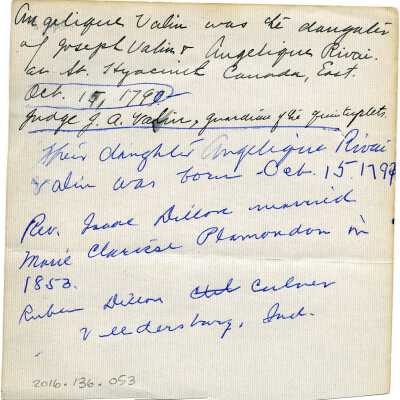 Angelique Valin was the daughter
of Joseph Valin & Angelique Rivai.
in St. Hyacinth Canada, East.
Oct. 15, 1792
Judge J. A. Valin, guardian of the quintuplets.
Their daughter Angelique Rivai
Valin was born Oct. 15 179
Rev. Isaac Dillon married
Marie Clarisse Plamondon in
1853.
Ruben Dillon Culver
Veedersburg, Ind.
2016.136.053